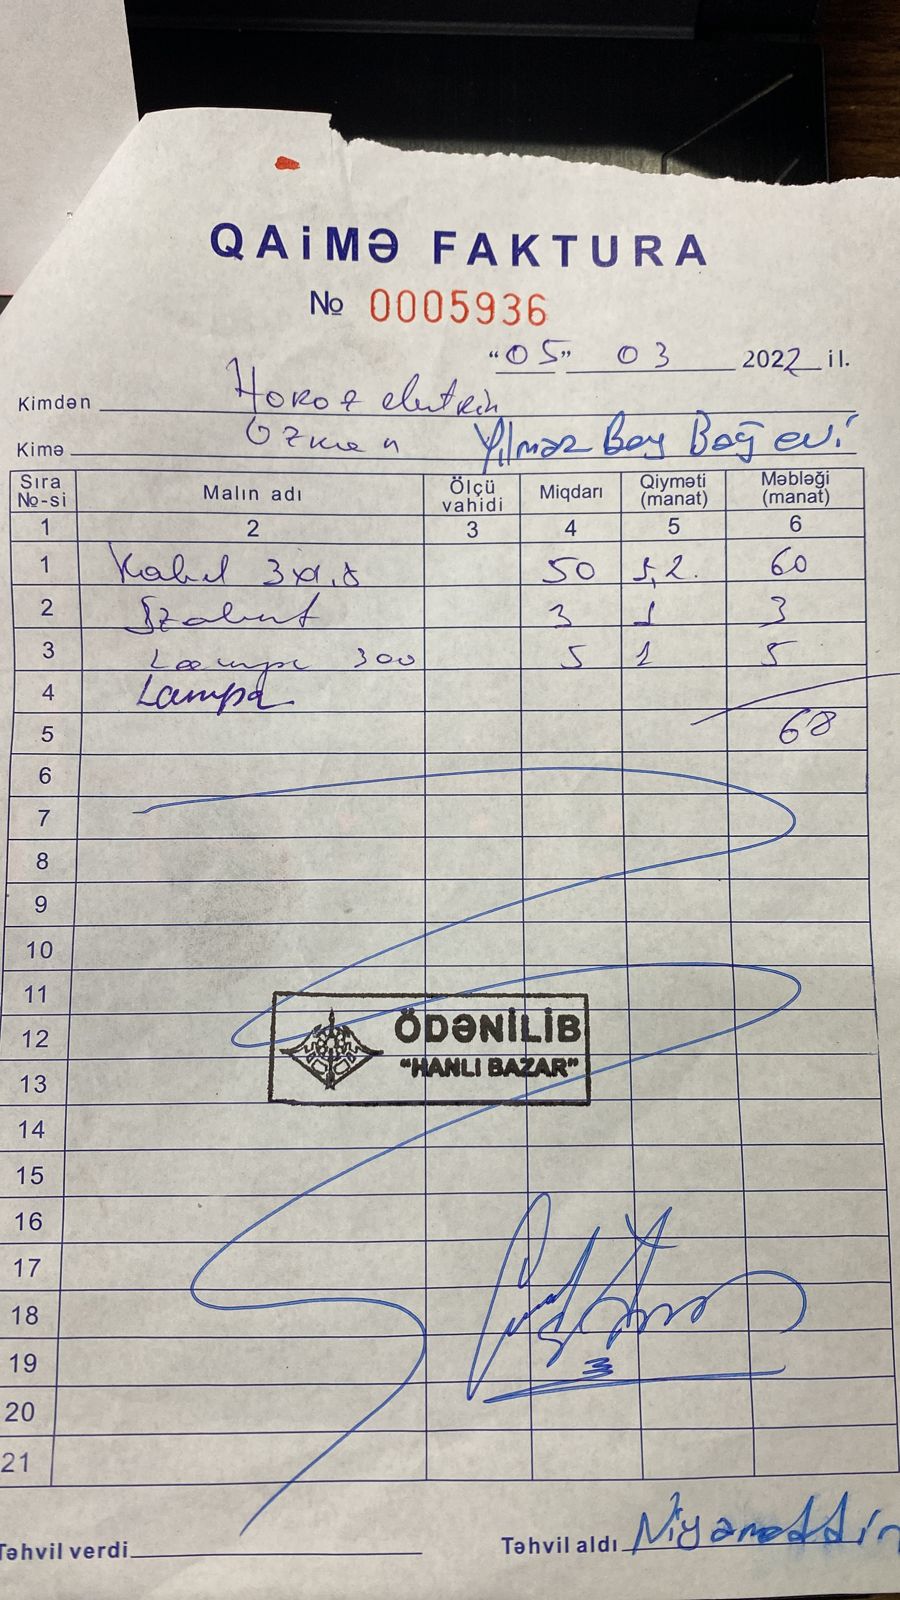 QAİMƏ FAKTURA
№ 0005936
"05" 03 2022 il.
Kimdən Horoz elektrik
Kimə Özmen Yılmaz Bey Bağ evi
Sıra №-si Malın adı Ölçü vahidi Miqdarı Qiyməti (manat) Məbləği (manat)
1 2 3 4 5 6
1 Kabel 3x1,5 50 1,2. 60
2 3 1 3
3 Lampa 300 5 1 5
4 Lampa
5 68
6
7
8
9
10
11
12
13
14
15
16
17
18
19
20
21
ÖDƏNİLİB
"HANLI BAZAR"
Təhvil verdi Təhvil aldı Niyamettin